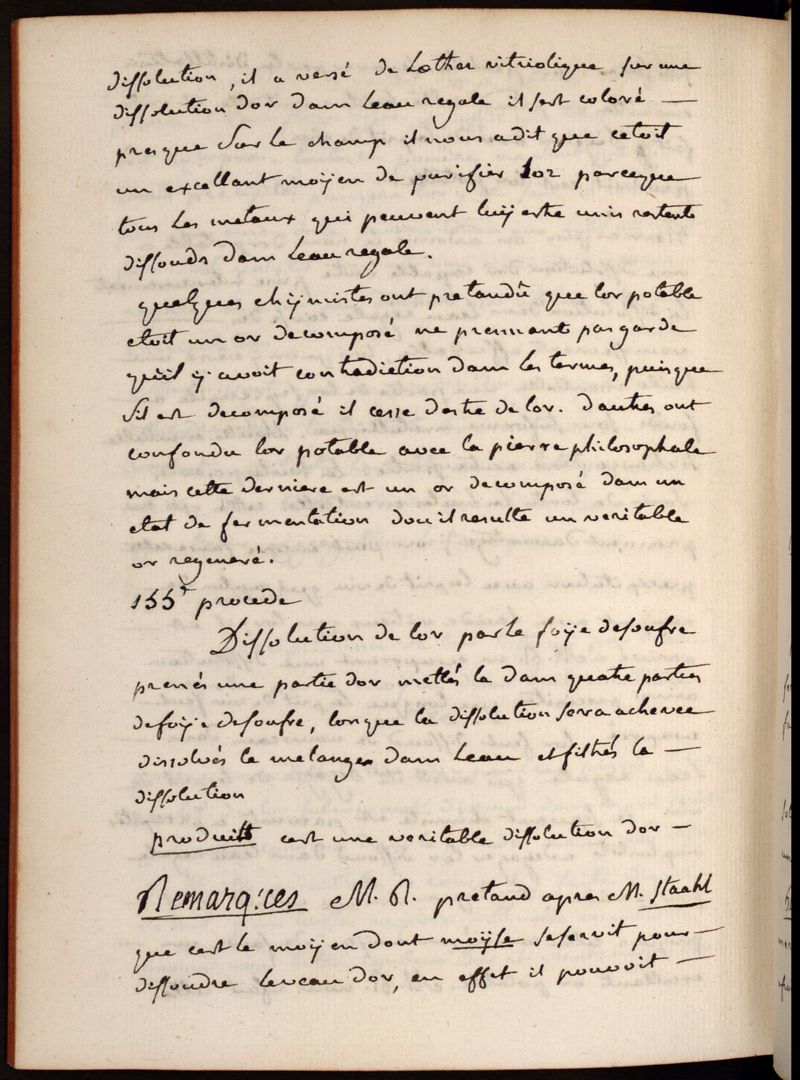 dissolution, il a versé de Lother vitriolique sur une
dissolution dor dans Leau regale il sest coloré —
presque sur le champ il nous a dit que cetoit
un excellant moÿen de purifier lor parceque
tous les metaux qui peuvent luÿ estre unis restents
dissouds dans Leau regale.
quelques chÿmistes ont pretandû que lor potable
etoit un or decomposé ne prennants pas garde
quil ÿ avoit contradiction dans les termes, puisque
sil est decomposé il cesse destre de lor. dautres ont
confondu lor potable avec la pierre philosophale
mais cette derniere est un or decomposé dans un
etat de fermentation dou il resulte un veritable
or regeneré.
155e procede
Dissolution de lor par le foÿe desoufre
prenés une partie dor mettés la dans quatre parties
defoÿe desoufre, lorsque la dissolution sera achevee
dissolvés le melange dans Leau et filtrés la —
dissolution
produitt cest une veritable dissolution dor —
Remarq:ces M. R. pretand apres M. Staahl
que cest le moÿen dont moÿse seservit pour —
dissoudre leveau dor, en effet il pouvoit —